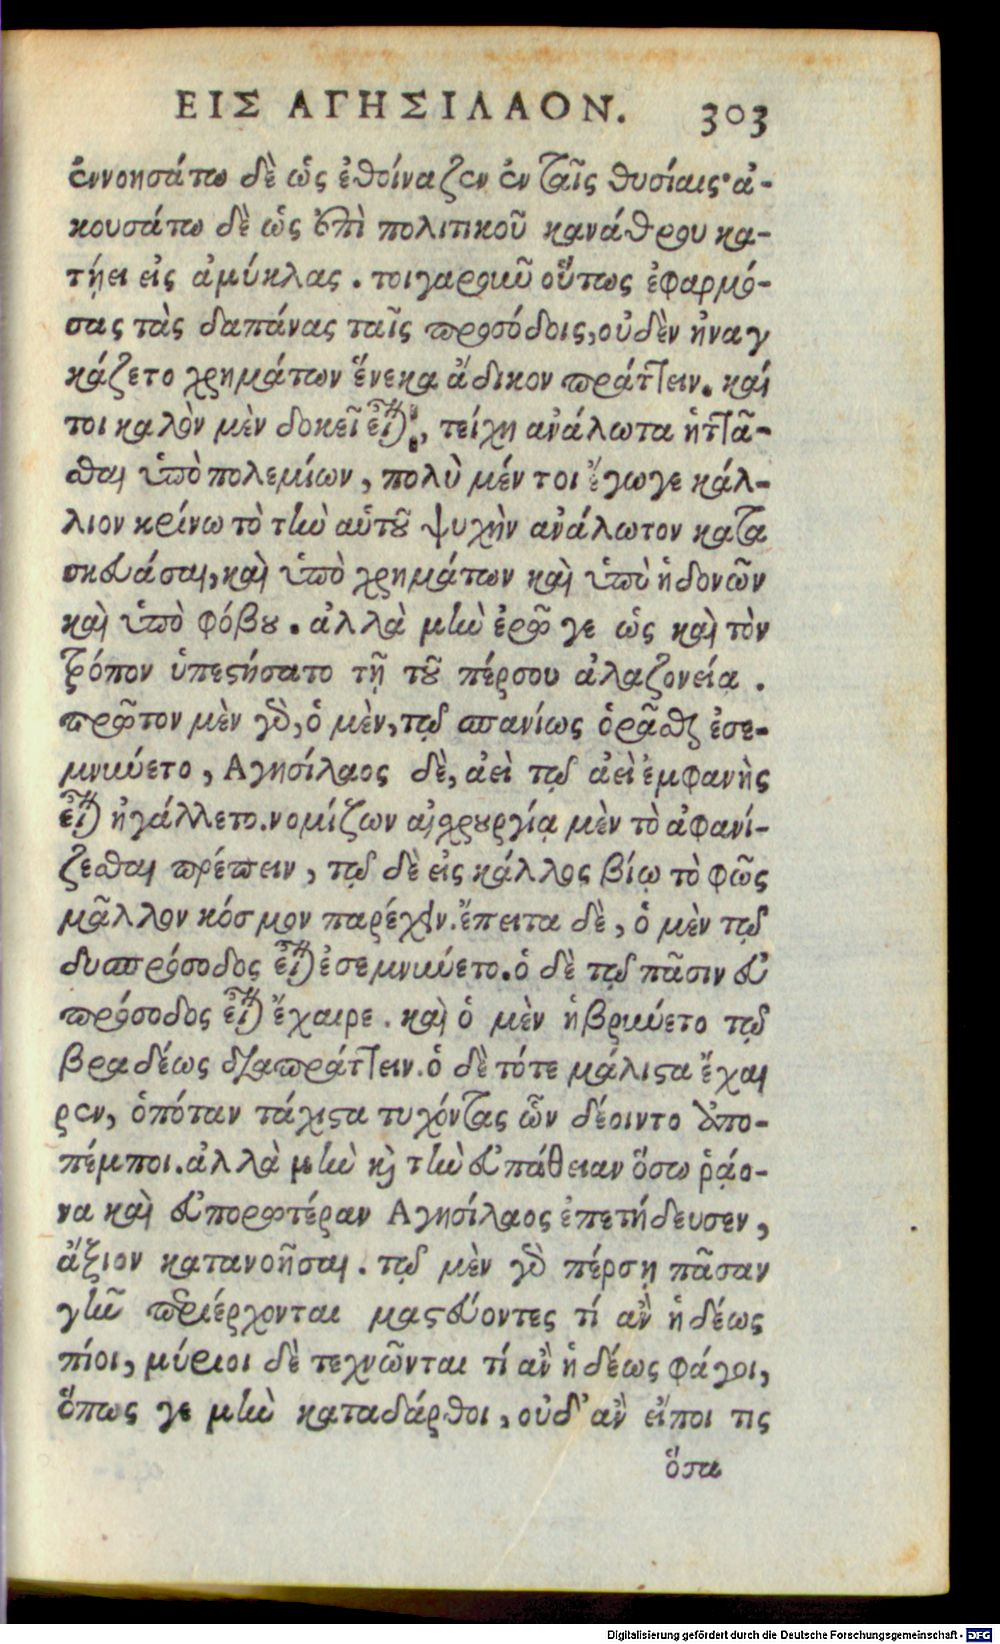 ΕΙΣ ΑΓΗΣΙΛΑΟΝ. 303
ἐννοησάτω δὲ ὡς ἐθοίναζεν ἐν ταῖς θυσίαις· ἀ-
κουσάτω δὲ ὡς ἐπὶ πολιτικοῦ κανάθρου κα-
τῄει εἰς ἀμύκλας. τοιγαροῦν οὕτως ἐφαρμό-
σας τὰς δαπάνας ταῖς προσόδοις, οὐδὲν ἠναγ
κάζετο χρημάτων ἕνεκα ἄδικον πράττειν. καί
τοι καλὸν μὲν δοκεῖ εἶναι, τείχη ἀνάλωτα ἡττᾶ-
σθαι ὑπὸ πολεμίων, πολὺ μέν τοι ἔγωγε κάλ-
λιον κρίνω τὸ τὴν αὑτοῦ ψυχὴν ἀνάλωτον κατα
σκευάσαι, καὶ ὑπὸ χρημάτων καὶ ὑπὸ ἡδονῶν
καὶ ὑπὸ φόβου. ἀλλὰ μὴν ἐρῶ γε ὡς καὶ τὸν
τρόπον ὑπεστήσατο τῇ τοῦ πέρσου ἀλαζονείᾳ.
πρῶτον μὲν γὰρ, ὁ μὲν, τῷ σπανίως ὁρᾶσθαι ἐσε-
μνύετο, Ἀγησίλαος δὲ, ἀεὶ τῷ ἀεὶ ἐμφανὴς
εἶναι ἠγάλλετο. νομίζων αἰσχρουργίᾳ μὲν τὸ ἀφανί-
ζεσθαι πρέπειν, τῷ δὲ εἰς κάλλος βίῳ τὸ φῶς
μᾶλλον κόσμον παρέχειν. ἔπειτα δὲ, ὁ μὲν τῷ
δυσπρόσοδος εἶναι ἐσεμνύετο. ὁ δὲ τῷ πᾶσιν εὐ
πρόσοδος εἶναι ἔχαιρε. καὶ ὁ μὲν ἡβρύετο τῷ
βραδέως διαπράττειν. ὁ δὲ τότε μάλιστα ἔχαι
ρεν, ὁπόταν τάχιστα τυχόντας ὧν δέοιντο ἀπο-
πέμποι. ἀλλὰ μὴν καὶ τὴν εὐπάθειαν ὅσῳ ῥᾴο-
να καὶ εὐπορωτέραν Ἀγησίλαος ἐπετήδευσεν,
ἄξιον κατανοῆσαι. τῷ μὲν γὰρ πέρσῃ πᾶσαν
γῆν περιέρχονται μαστεύοντες τί ἂν ἡδέως
πίοι, μύριοι δὲ τεχνῶνται τί ἂν ἡδέως φάγοι,
ὅπως γε μὴν καταδάρθοι, οὐδ' ἂν εἴποι τις
ὅσα
Digitalisierung gefördert durch die Deutsche Forschungsgemeinschaft - DFG